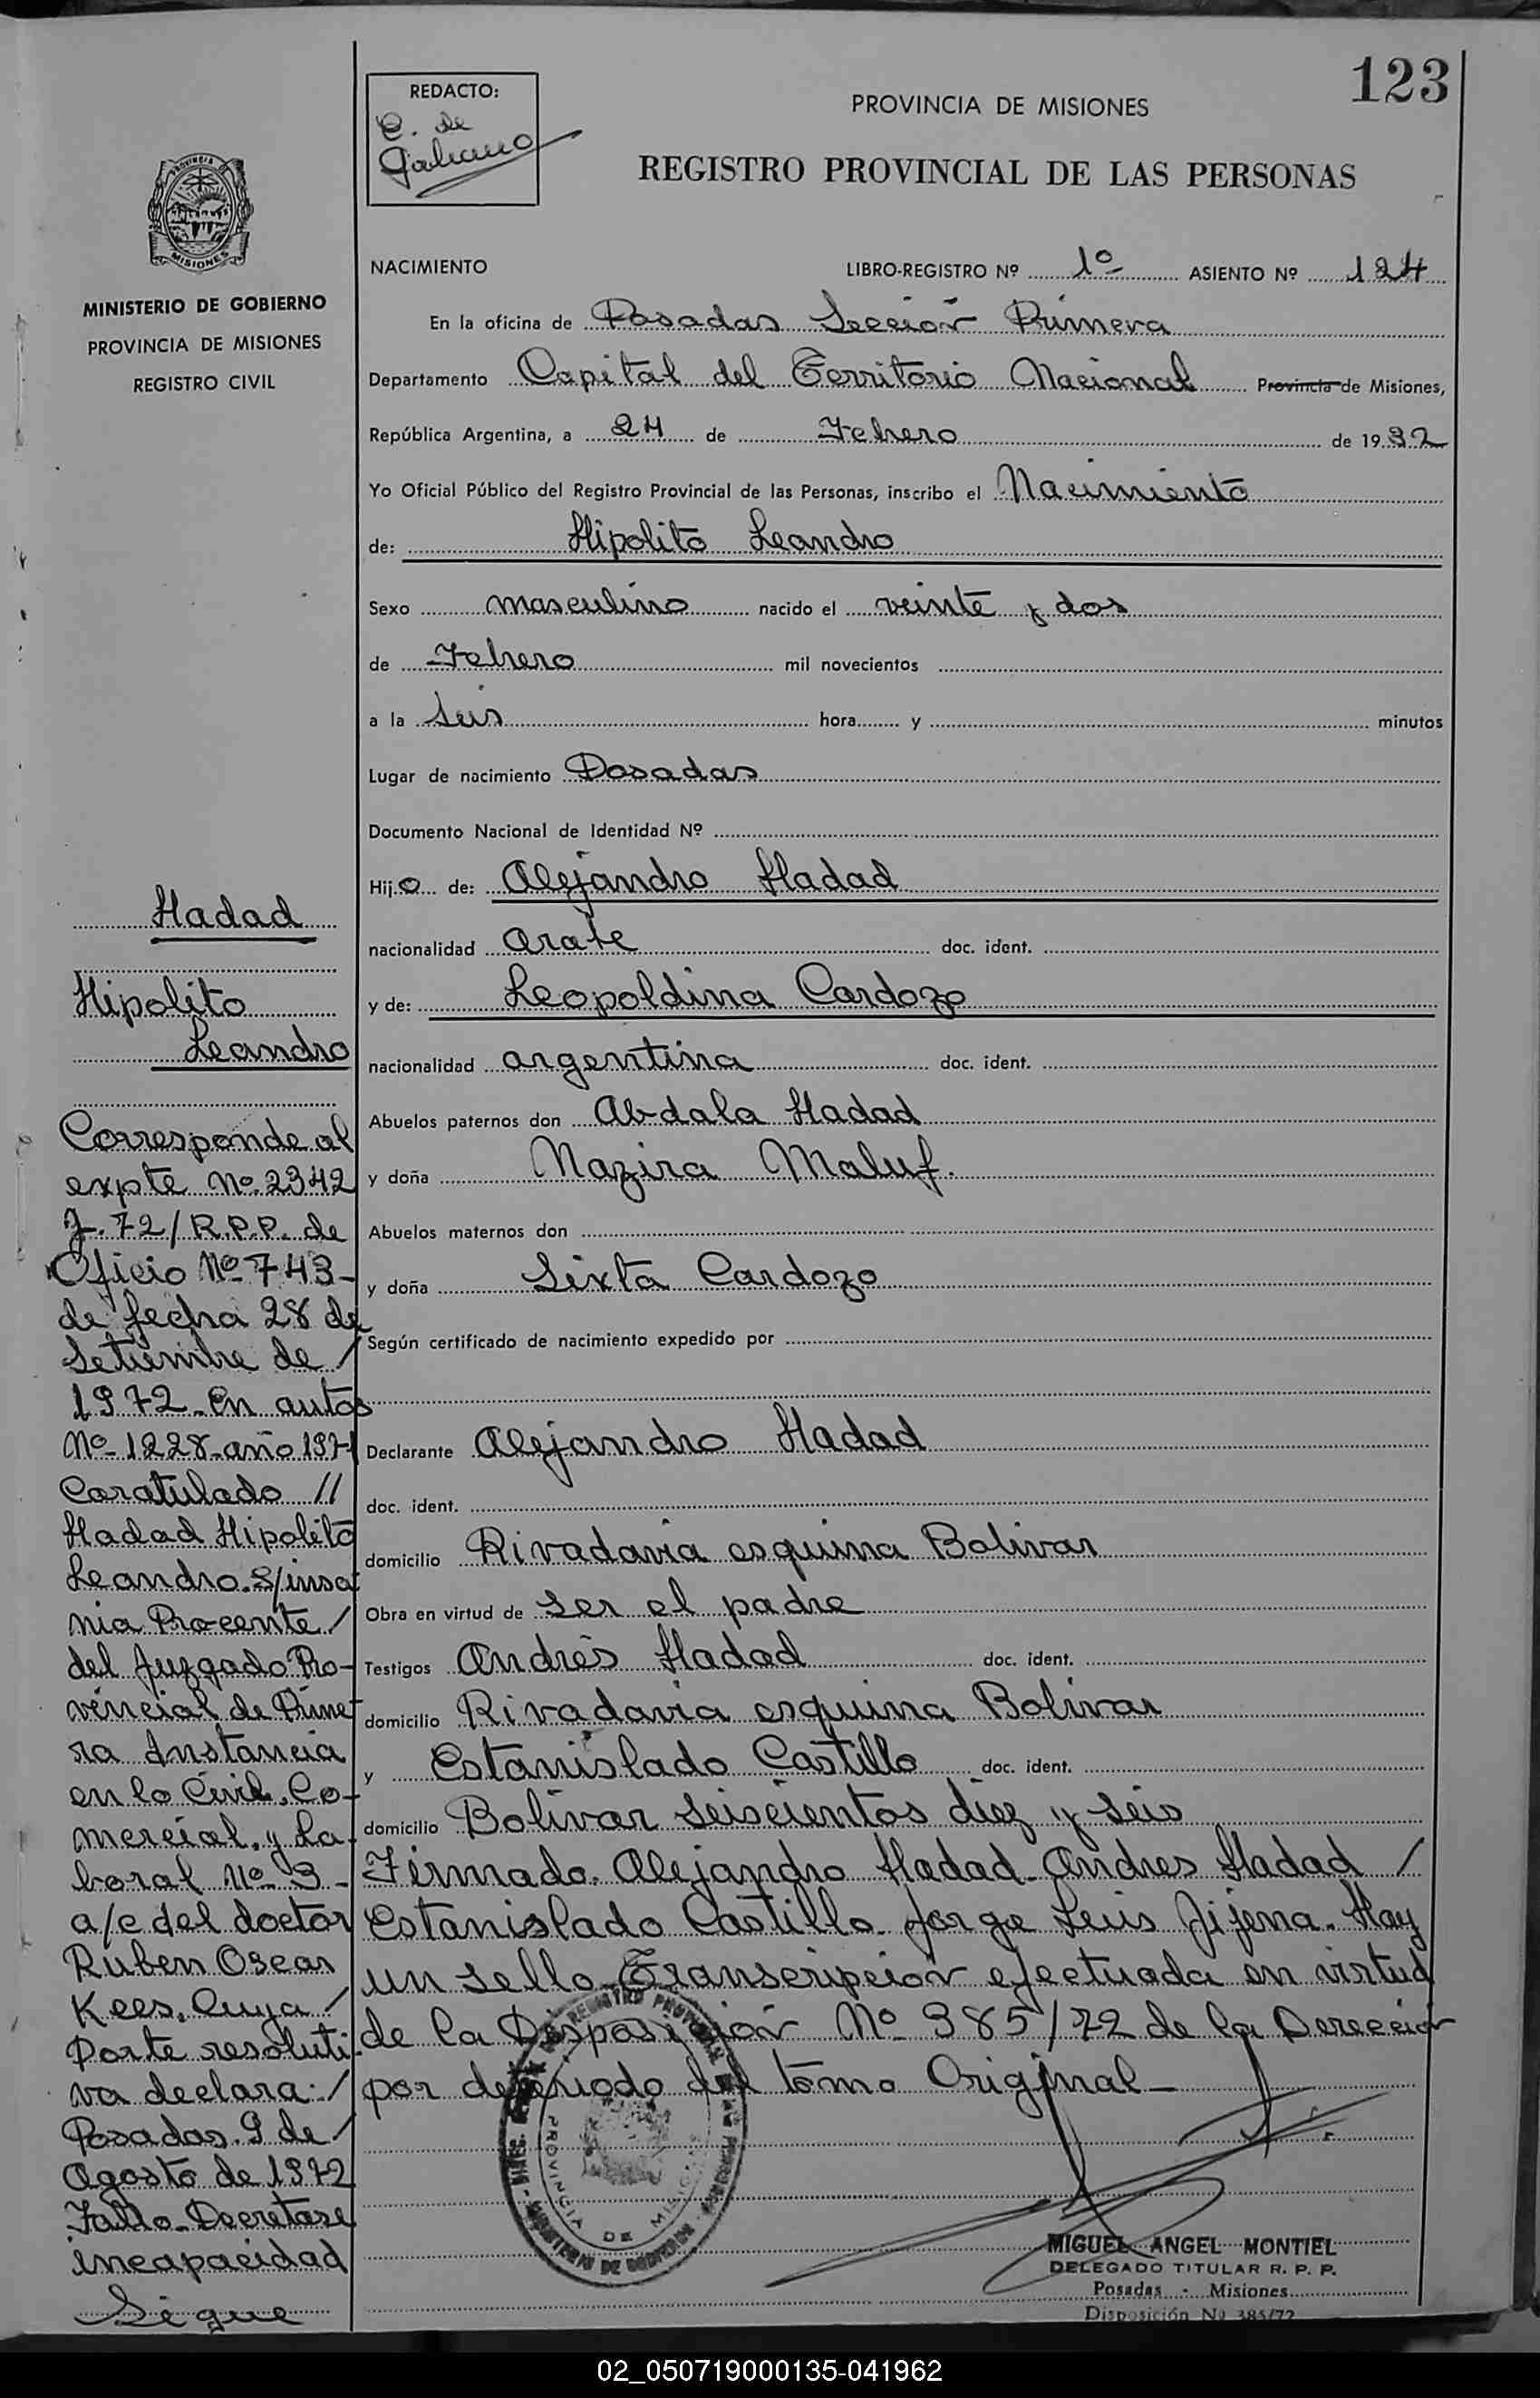 123
REDACTO:
C. de
Galeano
PROVINCIA DE MISIONES
REGISTRO PROVINCIAL DE LAS PERSONAS
PROVINCIA
MISIONES
MINISTERIO DE GOBIERNO
PROVINCIA DE MISIONES
REGISTRO CIVIL
NACIMIENTO LIBRO-REGISTRO Nº 1º ASIENTO Nº 124
En la oficina de Posadas Sección Primera
Departamento Capital del Territorio Nacional Provincia de Misiones,
República Argentina, a 24 de Febrero de 1932
Yo Oficial Público del Registro Provincial de las Personas, inscribo el Nacimiento
de: Hipolito Leandro
Sexo masculino nacido el veinte y dos
de Febrero mil novecientos
a la Seis hora y minutos
Lugar de nacimiento Posadas
Documento Nacional de Identidad Nº
Hijo de: Alejandro Hadad
nacionalidad arabe doc. ident.
y de: Leopoldina Cardozo
nacionalidad argentina doc. ident.
Abuelos paternos don Abdala Hadad
y doña Nazira Maluf.
Abuelos maternos don
y doña Sixta Cardozo
Según certificado de nacimiento expedido por
Declarante Alejandro Hadad
doc. ident.
domicilio Rivadavia esquina Bolivar
Obra en virtud de ser el padre
Testigos Andrés Hadad doc. ident.
domicilio Rivadavia esquina Bolivar
y Estanislado Castillo doc. ident.
domicilio Bolivar seiscientos diez y seis
Firmado. Alejandro Hadad - Andres Hadad /
Estanislado Castillo. Jorge Luis Jijena. Hay
un sello - Transcripción efectuada en virtud
de la Disposición Nº 385/72 de la Dirección
por deteriodo del tomo Original -
Hadad
Hipolito
Leandro
Corresponde al
expte Nº 2342
J. 72/R.P.P. de
Oficio Nº 743-
de fecha 28 de
Setiembre de /
1972 - En autos
Nº 1228 - año 1971
Caratulado //
Hadad Hipolito
Leandro. S/insa
nia Procente /
del Juzgado Pro-
vincial de Prime-
ra Instancia
en lo Civil, Co-
mercial, y La-
boral Nº 3 -
a/c del doctor
Ruben Oscar
Kees. Cuya /
Parte resoluti-
va declara: /
Posadas. 9 de /
Agosto de 1972
Fallo - Decretase
incapacidad
Sigue
PROVINCIA DE MISIONES
MIGUEL ANGEL MONTIEL
DELEGADO TITULAR R. P. P.
Posadas - Misiones
Disposición Nº 385/72
02_050719000135-041962